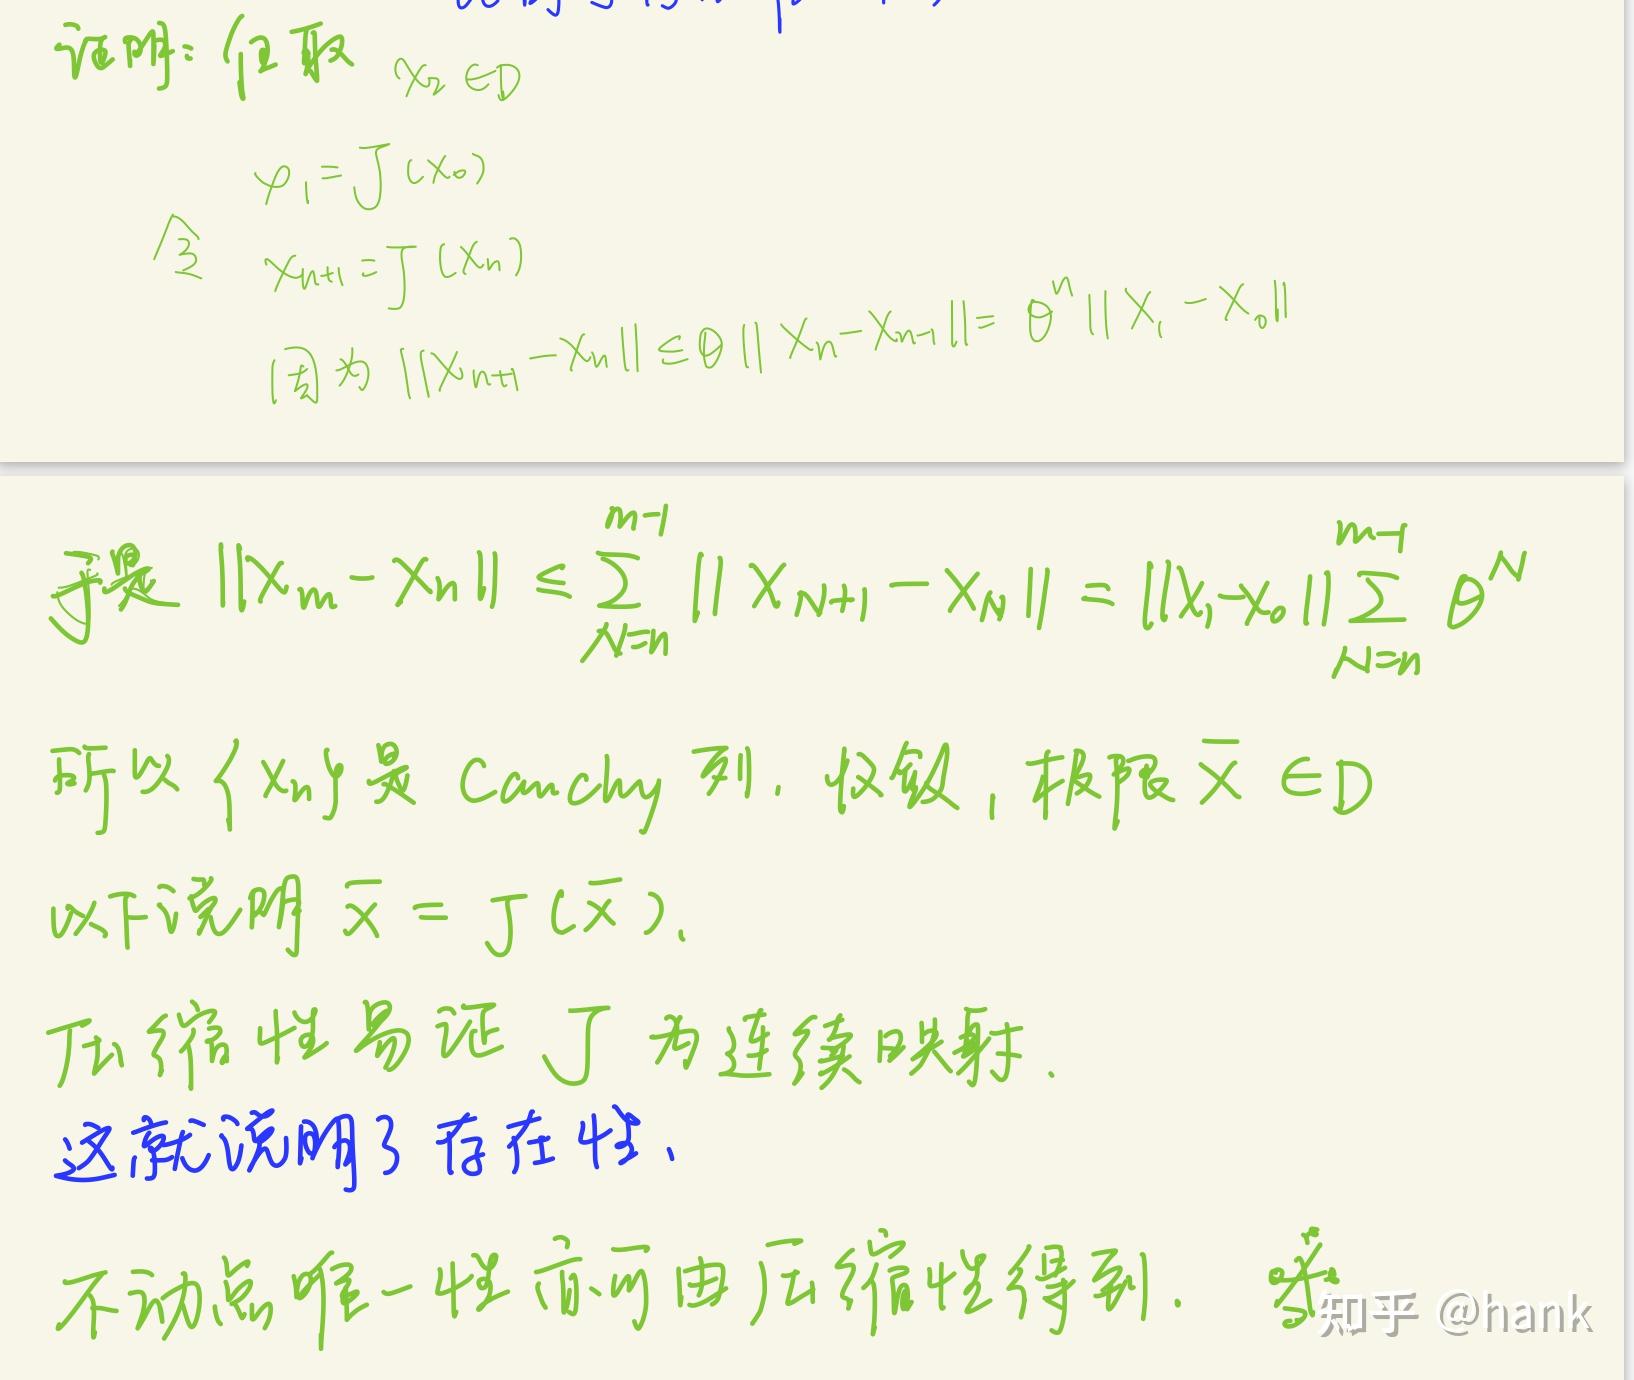 证明：任取 x₂ ∈ D
φ₁ = J(x₀)
令 xₙ₊₁ = J(xₙ)
因为 ||xₙ₊₁ - xₙ|| ≤ θ||xₙ - xₙ₋₁|| = θⁿ||x₁ - x₀||
于是 ||xₘ - xₙ|| ≤ Σ_{N=n}^{m-1} ||x_{N+1} - x_N|| = ||x₁ - x₀|| Σ_{N=n}^{m-1} θ^N
所以 {xₙ} 是 Cauchy 列. 收敛, 极限 x̄ ∈ D
以下说明 x̄ = J(x̄).
压缩性易证 J 为连续映射.
这就说明了存在性.
不动点唯一性亦可由压缩性得到.
知乎 @hank